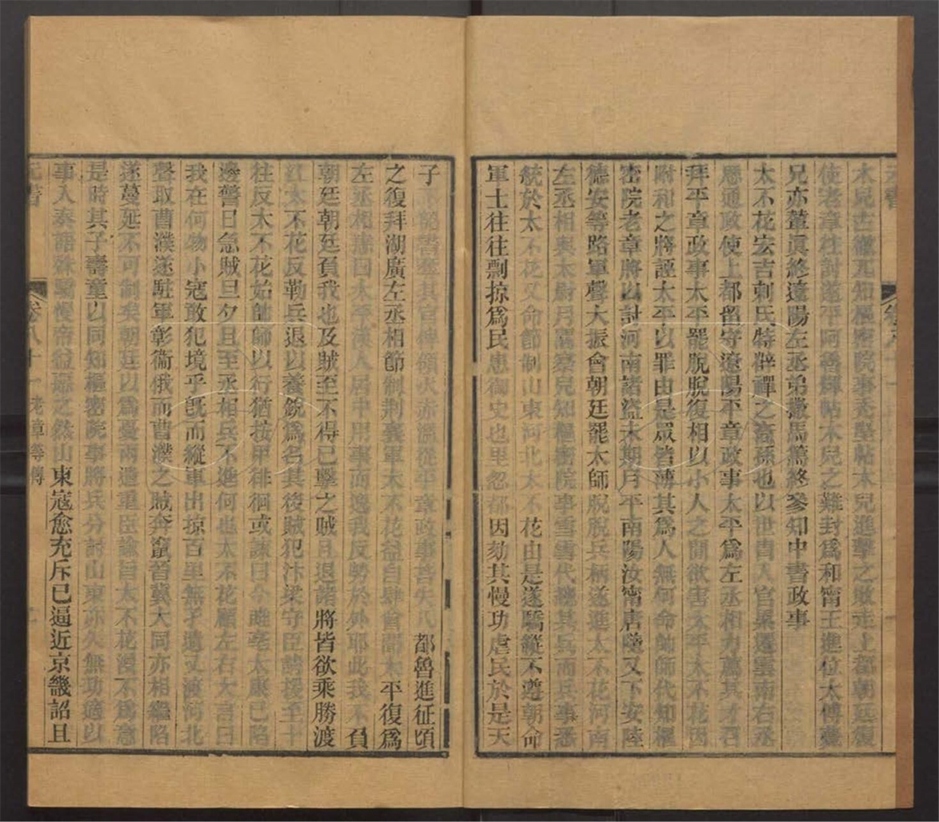 使老章往討遂平阿魯輝帖木兒之難封爲和甯王進位太傅薨
兄亦董眞終遼陽左丞弟撒馬篤終參知中書政事
太不花宏吉剌氏特薜禪之裔孫也以世胄入官累遷雲南右丞
歷通政使上都留守遼陽平章政事太平爲左丞相力薦其才召
拜平章政事太平罷脫脫復相以小人之間欲害太平太不花因
附和之將誣太平以罪由是眾皆薄其爲人無何命帥師代知樞
密院老章將以討河南諸盜未期月平南陽汝甯唐隨又下安陸
德安等路軍聲大振會朝廷罷太師脫脫兵柄遂進太不花河南
左丞相與太尉月闊察兒知樞密院事雪雪代總其兵而兵事悉
統於太不花又命節制山東河北太不花由是遂驕縱不遵朝命
軍士往往剽掠爲民患御史也里忽都因劾其慢功虐民於是天
子 其官 都魯進征頃
之復拜湖廣左丞相節制荆襄軍太不花益自肆會聞太平復爲
左丞相 曰太平漢人居中用事而遶我反勞於外耶此我不負
朝廷朝廷負我也及賊至不得已擊之賊且退諸將皆欲乘勝渡
江太不花反勒兵退以養銳爲名其後賊犯汴梁守臣請援至十
往反太不花始帥師以行猶按甲徘徊或諫曰今睢亳太康已陷
邊警日急賊旦夕且至丞相兵不進何也太不花顧左右大言曰
我在何物小寇敢犯境乎旣而縱軍出掠百里無孑遺又渡河北
聲取曹濮遂駐軍彰衞俄而曹濮之賊奔竄晉冀大同亦相繼陷
遂蔓延不可制矣朝廷以爲憂兩遣重臣諭旨太不花漫不爲意
是時其子壽童以同知樞密院事將兵分討山東亦久無功適以
事入奏語 慢帝益 之然山東寇愈充斥已逼近京畿詔且
元書
卷八十一 老章等傳